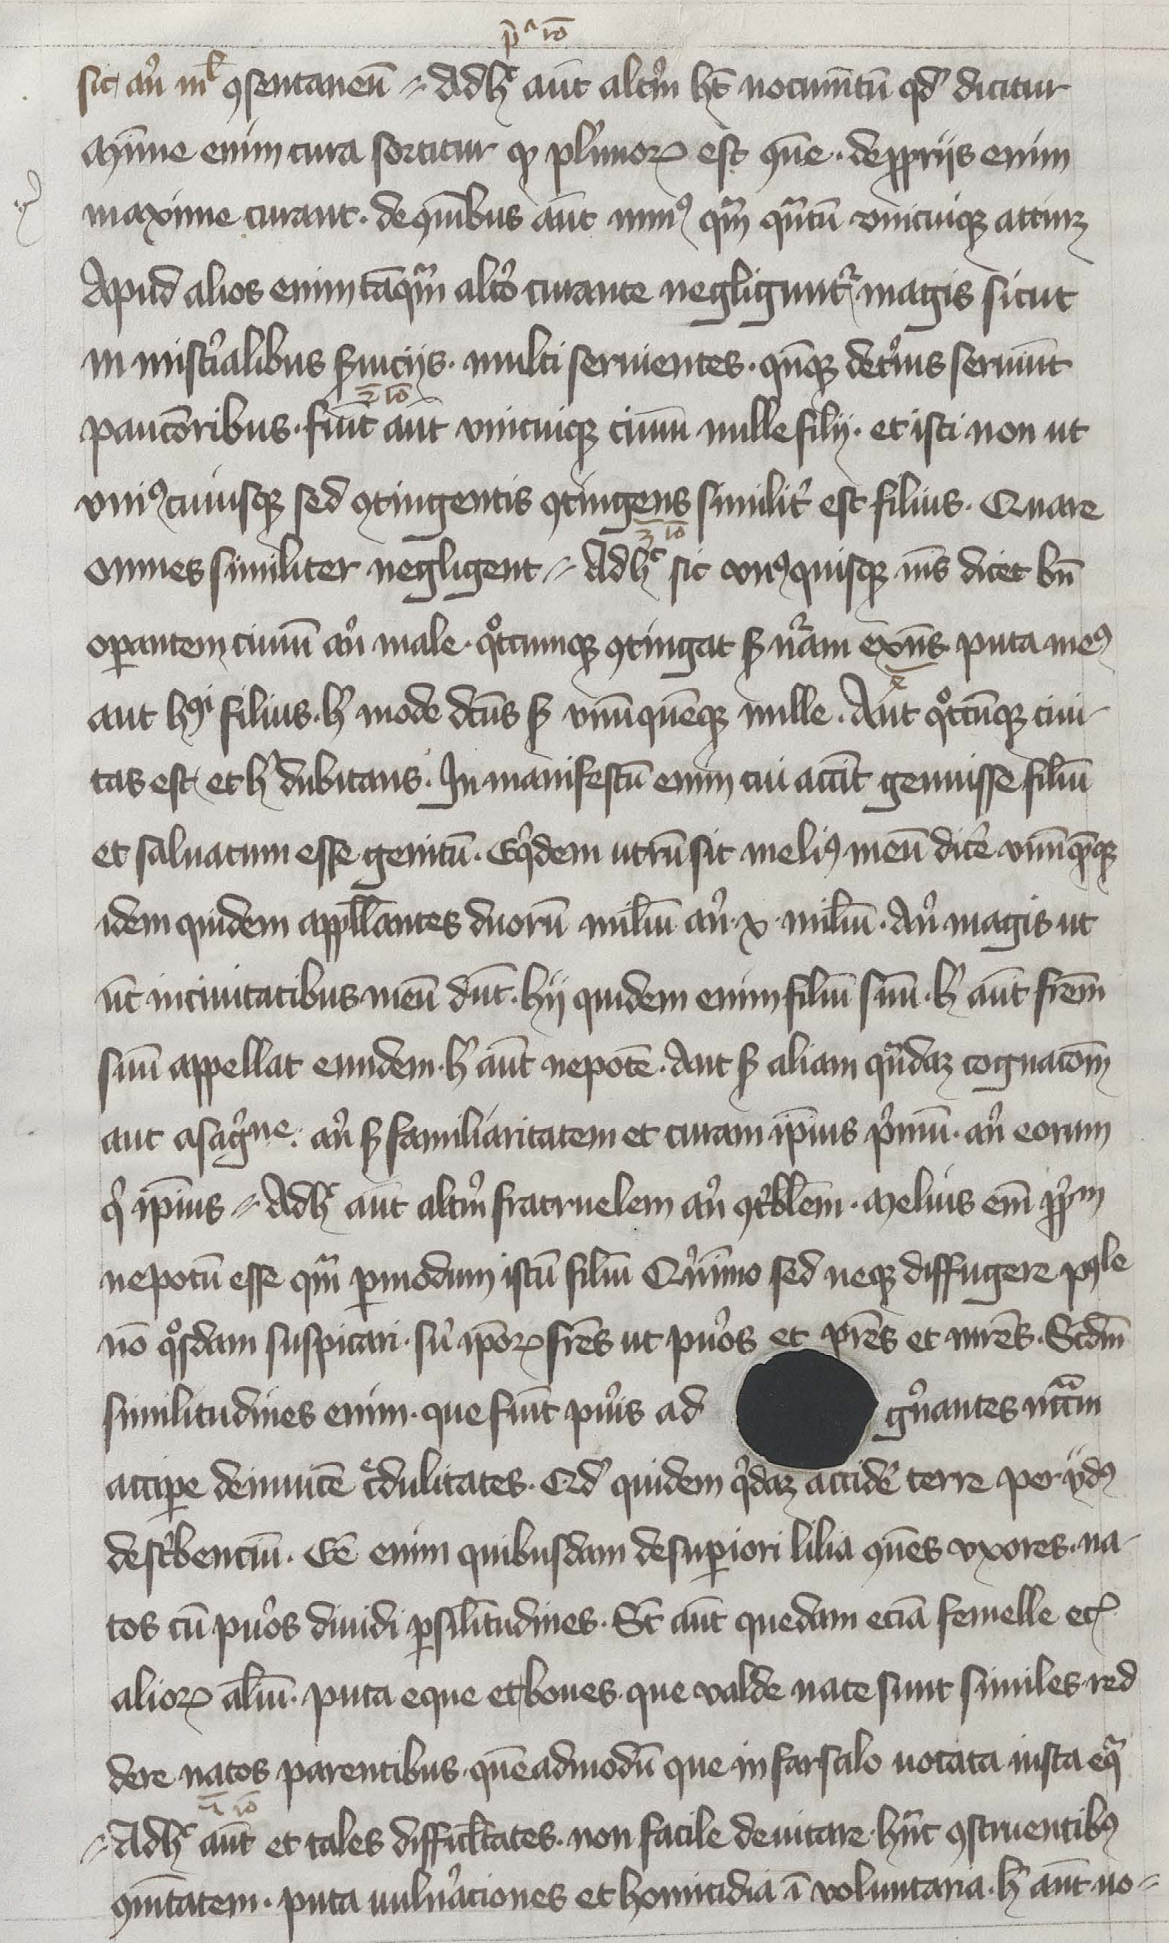 p^a 1ō
sic añ nl̄ ꝯsentaneū Adhᶜ aūt alt̄m hēt nocumētū qd̓ dicitur
Mīme enim cura sortitur qꝫ pl̓imoꝝ est ꝯmūe · de ꝓpriis enim
maxime curant · de ꝯmībus aūt minꝰ qm̄ qn̄tū vnicuiqꝫ attinꝫ
Apud alios enim tāqm̄ alt̓o curante negliguntᷣ magis sicut
in mist̓ialibus ẜuiciis · multi seruientes · qn̄qꝫ det̓ius seruiūt
2 1ō
paucōribus · fiūt aūt vnicuiqꝫ ciuiū mille filij · et isti non ut
vniꝰcuiusqꝫ sed ꝯtingentis ꝯtingens similit̓ est filius · Quare
3 1ō
omnes similiter negligent Adhᶜ sic vnꝰquisqꝫ m̄s dicet bn̄
oꝑantem ciuiū añ male · qͦtcumqꝫ ꝯtingat ẜ nr̄am exn̄s · puta meꝰ
aut hꝰꝰ filius · h̓ mode dc̄us ẜ vnūquēqꝫ mille · Aut qͦtcūqꝫ ciui-
tas est et h̓ dubitans · Inmanifestū enim cui accīt genuisse filiū
et saluatum esse genitū · Eqͥdem utrū sit meliꝰ meū dic̓e vnūqēqꝫ
idem quidem appl̄lantes duorū miliū añ · x · miliū · Añ magis ut
nc̄ in ciuitatibus meū dn̄t · hij quidem enim filiū suū · h̓ aūt fr̄em
suū appellat eundem · h̓ aūt nepotē · Aut ẜ aliam qn̄daꝫ cognacōꝫ
aut asag̓ne · añ ẜ familiaritatem et curam ip̄ius p̓mū · añ eorum
q̓ ip̄ius Adhᶜ aūt alt̄m fratruelem añ ꝯt̓bl̄em · Melius em̄ ꝓpͥm
nepotū esse qm̄ ꝑ modum istū filiū Qͥnīmo sed neqꝫ diffugere pᵒˡe
nō qͦsdam suspicari · sū ip̄oꝝ fr̄es ut pu̓os et pr̄es et mr̄es · Scdm̄
similitudines enim · que fiūt pu̓is ad gn̓antes nc̄cām
accipe deinuicē c̓dulitates · Qd̓ quidem qͥdaꝫ accide̓ terre per ydꝰ
desc̓benciū · Ee̓ enim quibusdam de superiori lilia ꝯmūes vxores · na-
tos cū pu̓os diuidi ꝑ silitudines · St̄ aūt quedam eciā femelle ec̓
alioꝝ al̄iū · puta eque et boues · que valde nate sunt similes · red
dere natos parentibus · quēadmodū que in farsalo uocata iusta eqᵃ
4 1ō
Adhᶜ aūt et tales difficl̄tates · non facile deuitare · hīīt ꝯstruentibꝰ
ꝯmūitatem · puta uuln̓aciones et homicidia ī voluntaria · h̓ aūt uo-